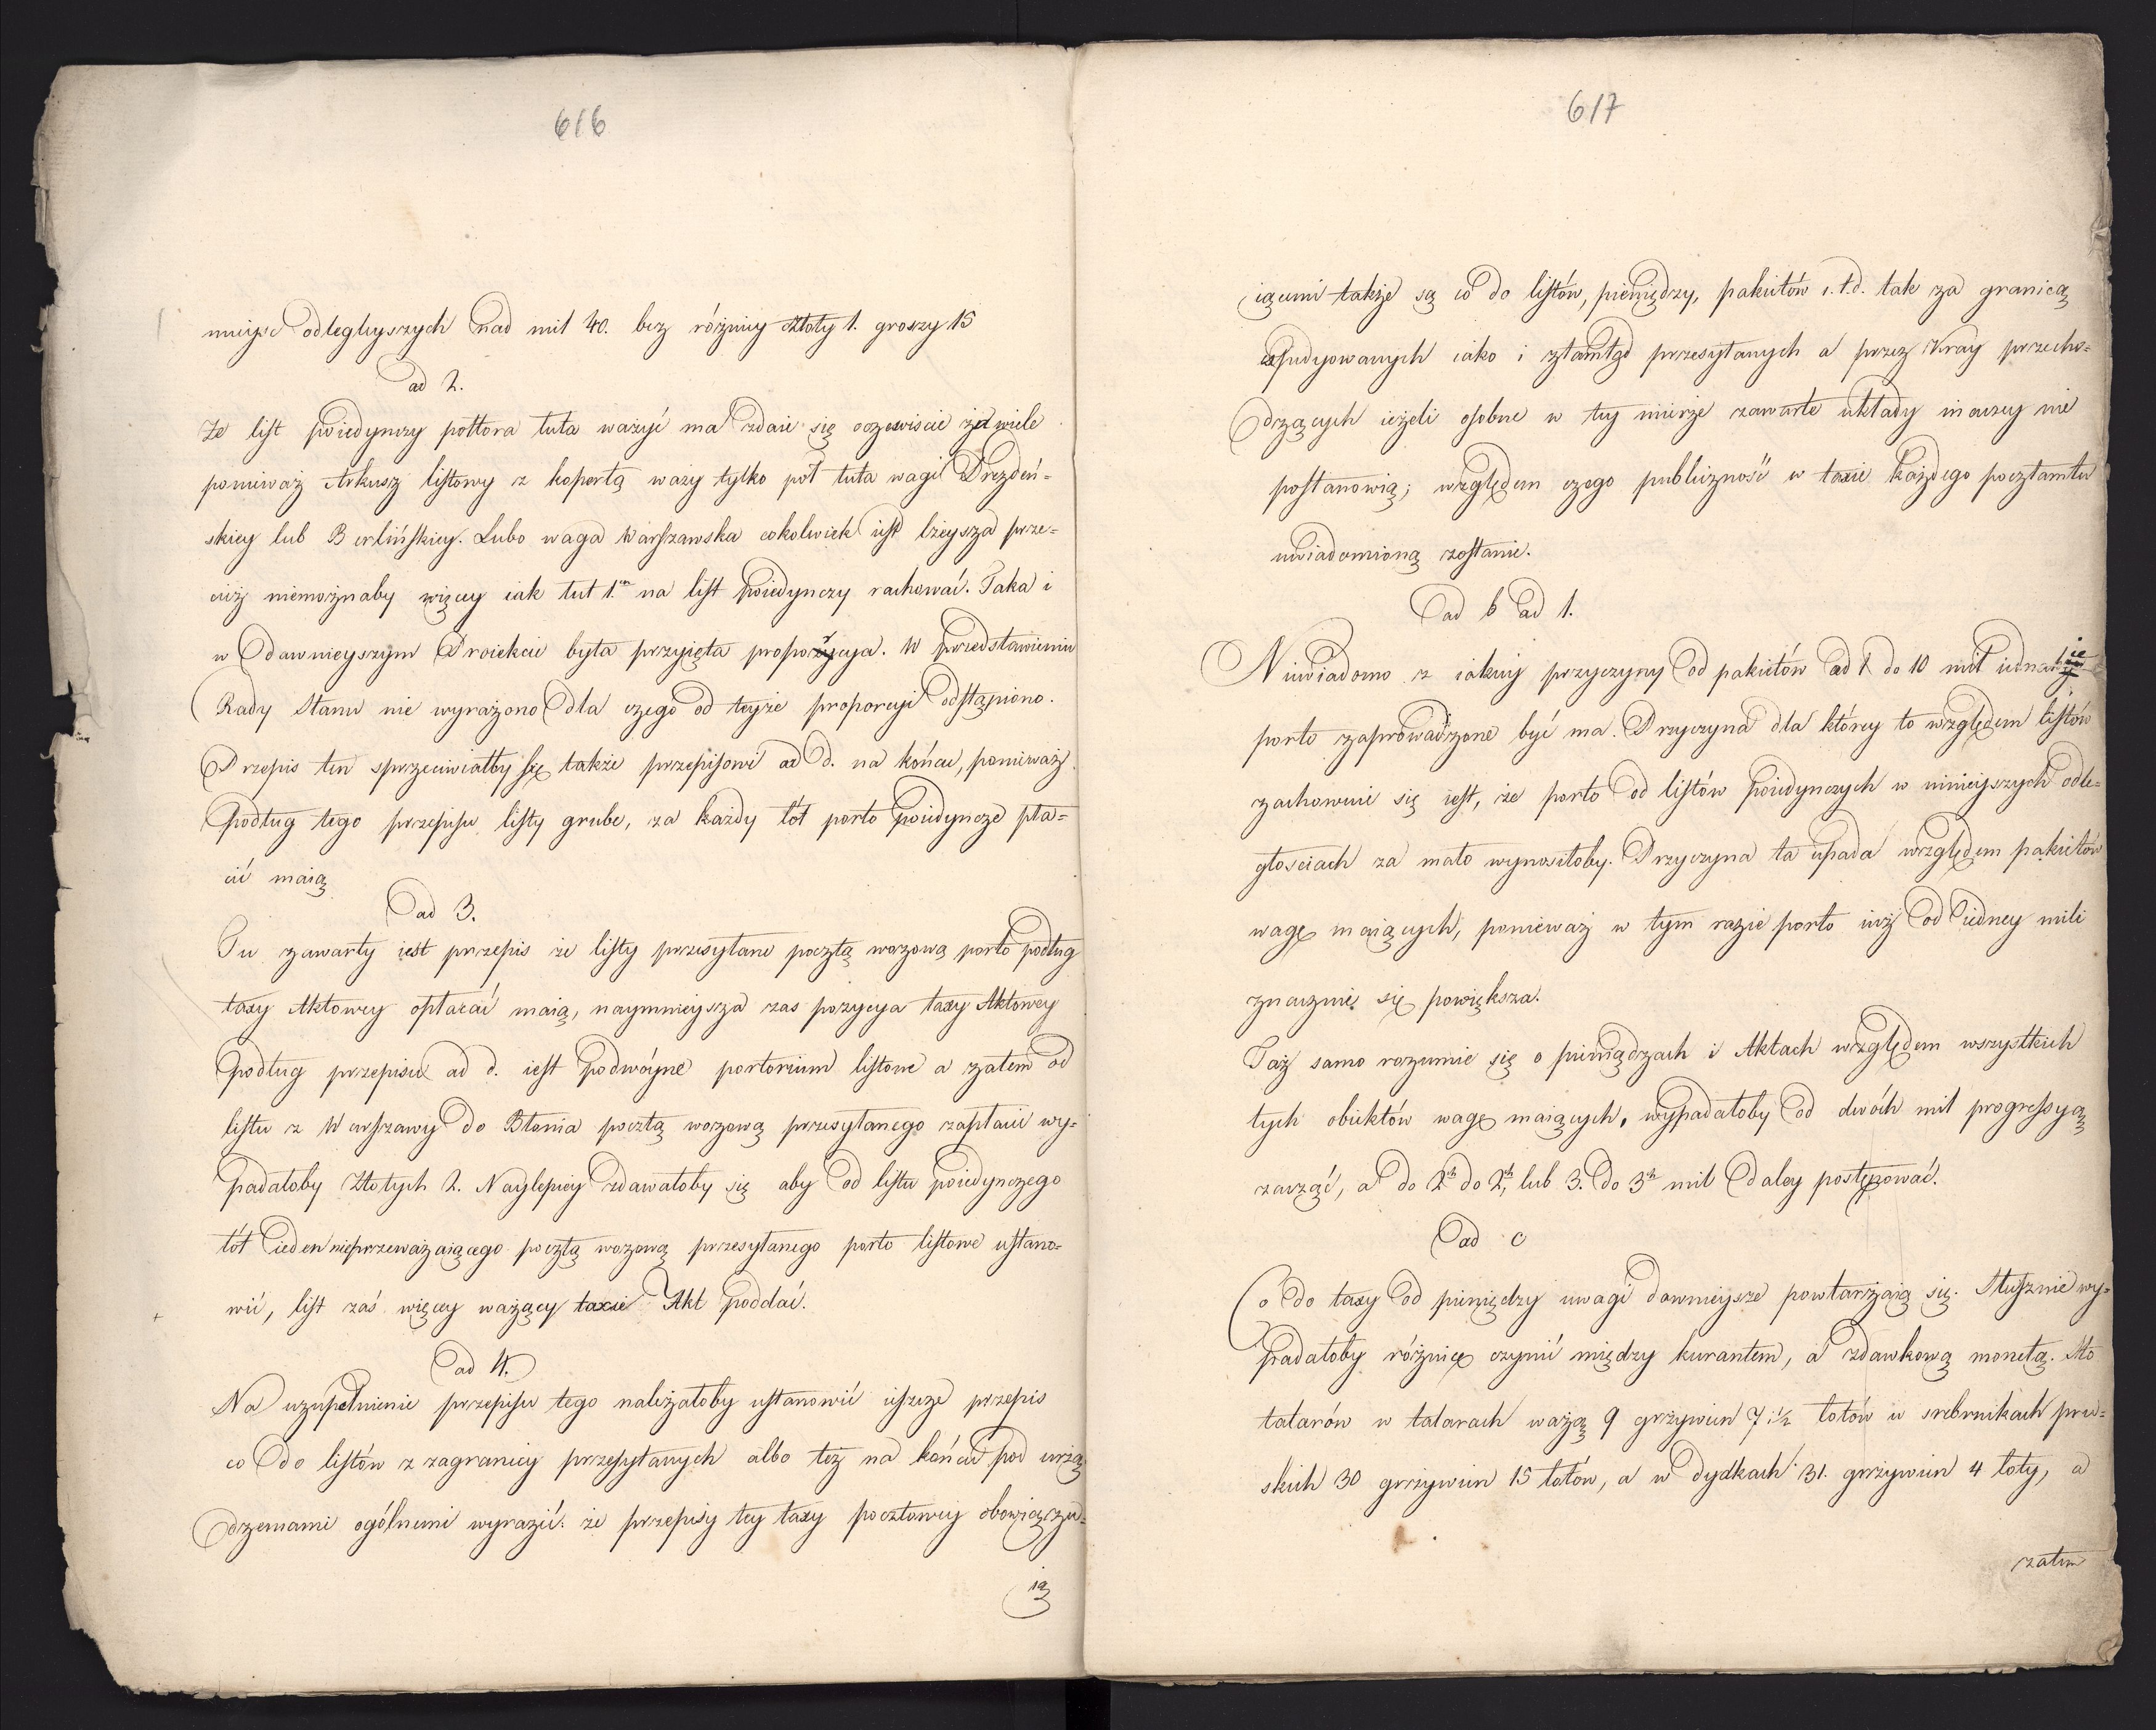 616
mieysc odlegleyszych nad mil 40. bez różnicy złoty 1. groszy 15
ad 2.
Że list poiedynczy połtora łuta ważyć ma zdaie się oczewiscie za wiele
ponieważ Arkusz listowy z kopertą waży tylko pół łuta wagi Drezdeń-
skiey lub Berlińskiey. Lubo waga Warszawska cokolwiek iest lżeysza prze-
cież niemożnaby więcey iak łut 1.en na list poiedynczy rachować. Taka i
w dawnieyszym Proiekcie była przyięta proporcya. W przedstawieniu
Rady Stanu nie wyrażono dla czego od teyże proporcyi odstąpiono.
Przepis ten sprzeciwiałby się także przepisowi ad d. na końcu, ponieważ
podług tego przepisu listy grube, za każdy łót porto poiedyncze pła-
cić maią
ad 3.
Tu zawarty iest przepis że listy przesyłane pocztą wozową porto podług
taxy Aktowey opłacać maią, naymnieysza zas pozycya taxy Aktowey
podług przepisu ad d. iest podwóyne portorium listowe a zatem od
listu z Warszawy do Błonia pocztą wozową przesyłanego zapłacić wy-
padałoby Złotych 2. Naylepiey zdawałoby się aby od listu poiedynczego
łót ieden nieprzeważaiącego pocztą wozową przesyłanego porto listowe ustano-
wić, list zaś więcey ważący taxie Akt poddać.
ad 4.
Na uzupełnienie przepisu tego należałoby ustanowić ieszcze przepis
co do listów z zagranicy przesyłanych albo też na końcu pod urzą
drzeniami ogólnemi wyrazić: że przepisy tey taxy pocztowey obowiązu-
ią
617
iącemi także są co do listów, pieniędzy, pakietów i.t.d. tak za granicą
expedyowanych iako i ztamtąd przesyłanych a przez Kray przecho-
drzących ieżeli osobne w tey mierze zawarte układy inaczey nie
postanowią; względem czego publiczność w taxie każdego pocztamtu
uwiadomioną zostanie.
ad b ad 1.
Niewiadomo z iakiey przyczyny od pakietów ad 1 do 10 mil iednakie
porto zaprowadzone być ma. Przyczyna dla którey to względem listów
zachowuie się iest, że porto od listów poiedynczych w mnieyszych odle-
głosciach za mało wynosiłoby. Przyczyna ta upada względem pakietów
wagę maiących, ponieważ w tym razie porto iuż od iedney mili
znacznie się powiększa.
Taż samo rozumie się o pieniądzach i Aktach względem wszystkich
tych obiektów wagę maiących, wypadałoby od dwóch mil progressyą
zacząć, a do 2ch do 2ch, lub 3. do 3ch mil daley postępować.
ad c
Co do taxy od pieniędzy uwagi dawnieysze powtarzaią się. Słusznie wy-
padałoby różnicę czynić między kurantem, a zdawkową monetą. Sto
talarów w talarach ważą 9 grzywien 7 1/2 łotów w srebrnikach pru-
skich 30 grzywien 15 łotów, a w dydkach 31. grzywien 4 łoty, a
zatem